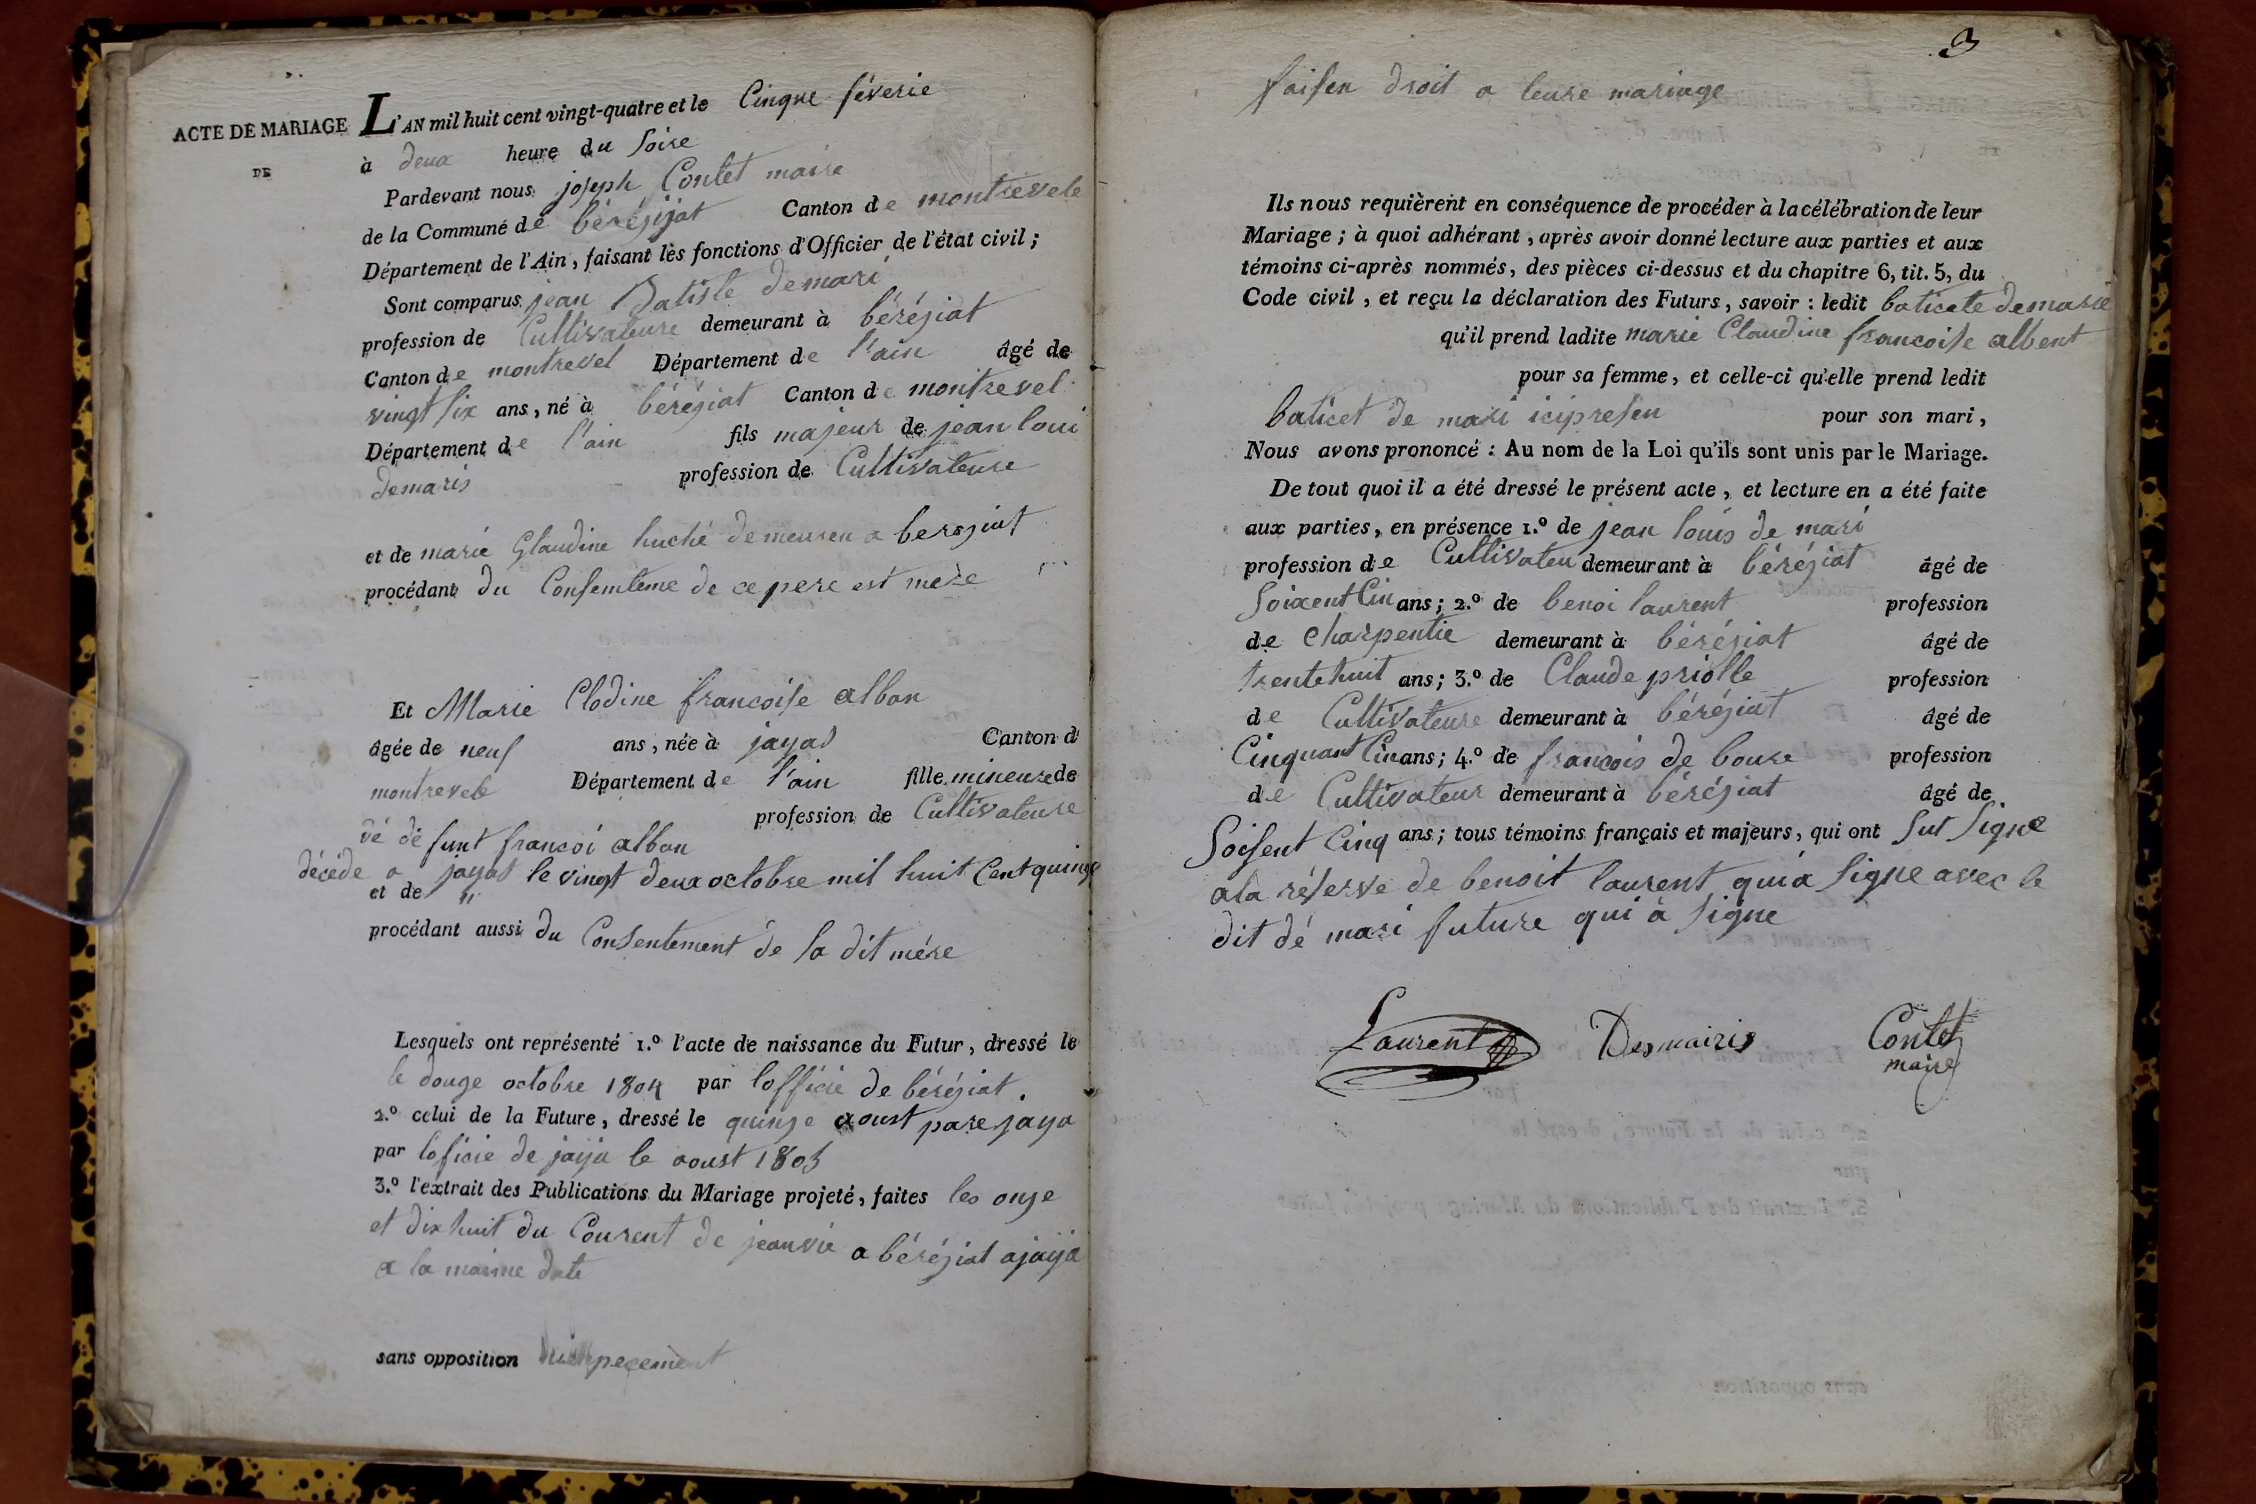 ACTE DE MARIAGE
DE
L'AN mil huit cent vingt-quatre et le Cinque féverie
à deux heure du soire
Pardevant nous joseph Contet maire
de la Commune de béréjiat Canton de montrevele
Département de l'Ain, faisant les fonctions d'Officier de l'état civil;
Sont comparus jean Batiste demari
profession de Cultivateure demeurant à béréjiat
Canton de montrevel Département de l'ain âgé de
vingt six ans, né à béréjiat Canton de montrevel
Département de l'ain fils majeur de jean loui
demaris profession de Cultivateure
et de marie Glaudine huché demeuren a berejiat
procédant du Consemteme de ce pere est mere
Et Marie Clodine francoise alban
âgée de neuf ans, née à jayat Canton d
montrevele Département de l'ain fille mineure de
profession de Cultivateure
dé de funt francoi alban
décéde a jayat le vingt deux octobre mil huit Cent quinze
et de "
procédant aussi du Consentement de la dit mére
Lesquels ont représenté 1.º l'acte de naissance du Futur, dressé le
le douze octobre 1804 par l'officie de béréjiat
2.º celui de la Future, dressé le quinze aoust pare jaya
par loficie de jaya le aoust 1805
3.º l'extrait des Publications du Mariage projeté, faites les onze
et dix huit du Courent de jeanvie a béréjiat a jaya
a la maime date
sans opposition
3
faisen droit a leure mariage
Ils nous requièrent en conséquence de procéder à la célébration de leur
Mariage; à quoi adhérant, après avoir donné lecture aux parties et aux
témoins ci-après nommés, des pièces ci-dessus et du chapitre 6, tit. 5, du
Code civil, et reçu la déclaration des Futurs, savoir: ledit baticete demarie
qu'il prend ladite marie Claudine francoise albent
pour sa femme, et celle-ci qu'elle prend ledit
baticet de mari icipresen pour son mari,
Nous avons prononcé: Au nom de la Loi qu'ils sont unis par le Mariage.
De tout quoi il a été dressé le présent acte, et lecture en a été faite
aux parties, en présence 1.º de jean louis de mari
profession de Cultivateu demeurant à béréjiat âgé de
Soixent Cin ans; 2.º de benoi laurent profession
de Charpentie demeurant à béréjiat âgé de
trente huit ans; 3.º de Claude priolle profession
de Cultivateure demeurant à béréjiat âgé de
Cinquant Cin ans; 4.º de francois de boure profession
de Cultivateur demeurant à béréjiat âgé de
Soisent Cinq ans; tous témoins français et majeurs, qui ont sut signe
a la réserve de benoit laurent qui a signe avec le
dit dé mari future qui à signe
Laurent Desmairis Contet
maire